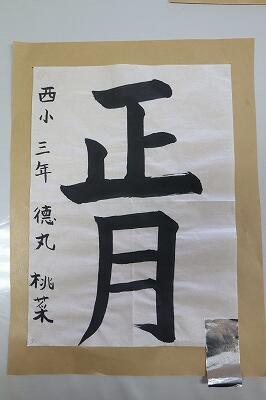 正月
西小 三年 德丸 桃菜